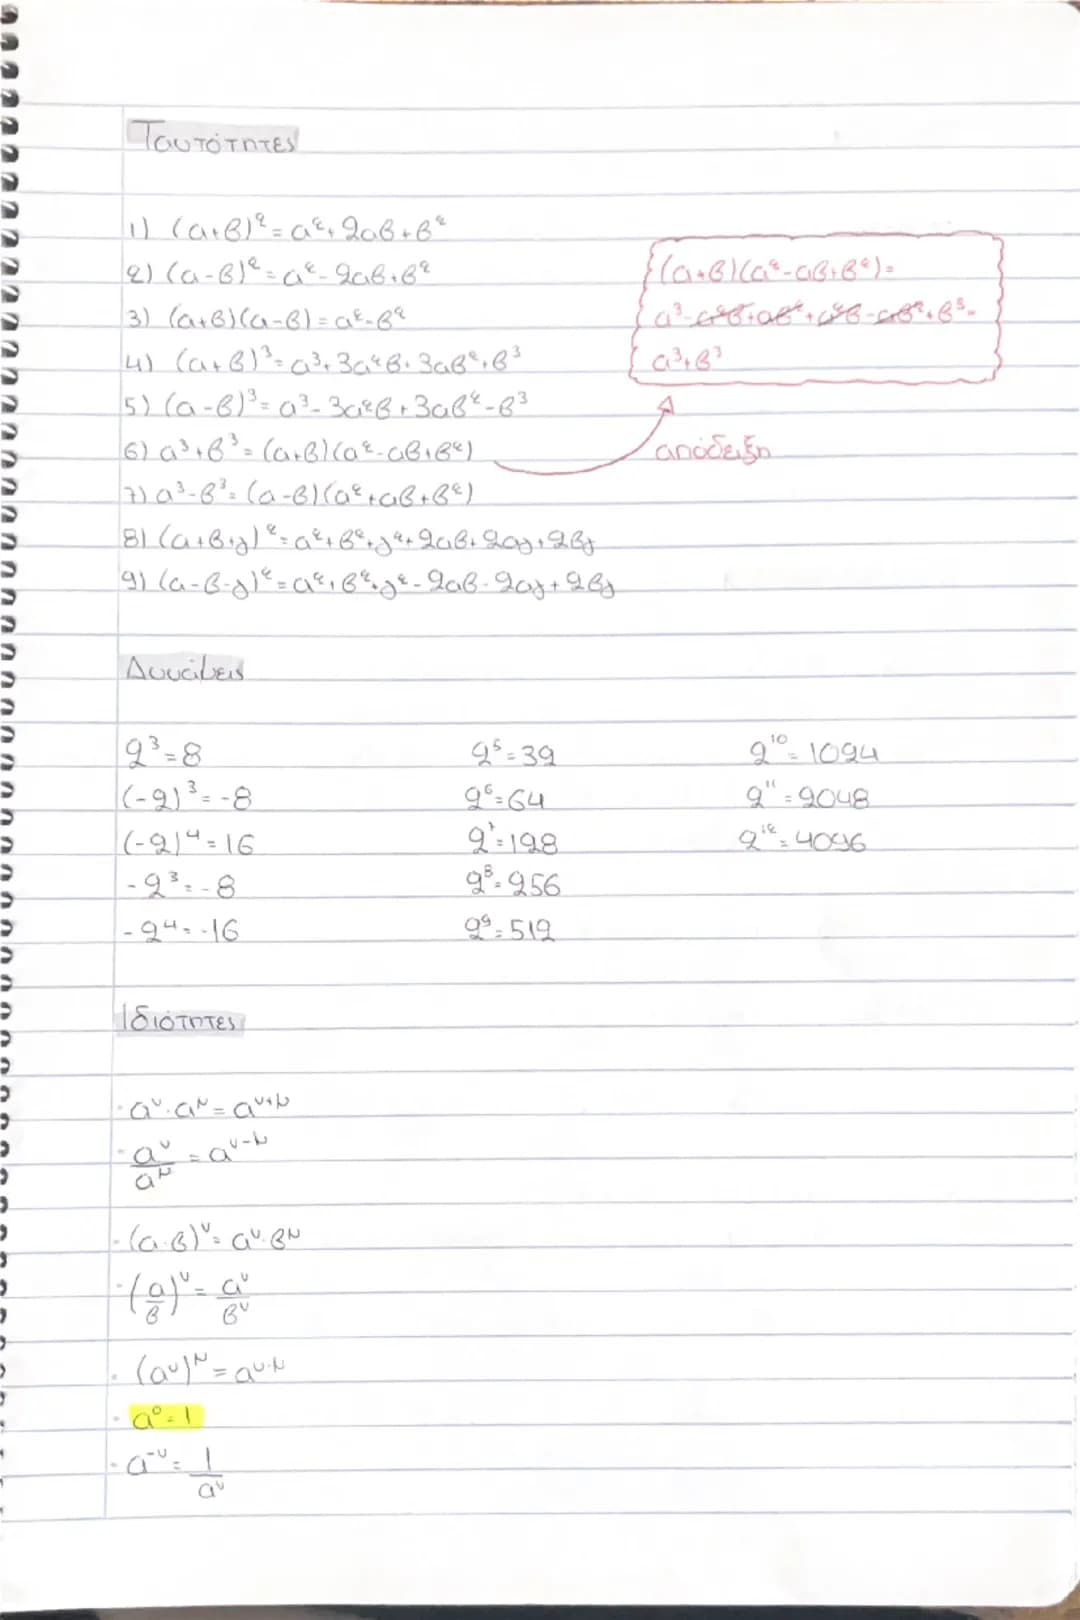 Ταυτότητες
1) (α+β)²=α²+2αβ+β²
2) (α-β)²=α²-2αβ+β²
3) (α+β)(α-β)=α²-β²
4) (α+β)³=α³+3α²β+3αβ²+β³
5) (α-β)³=α³-3α²β+3αβ²-β³
6) α³+β³=(α+β)(α²-αβ+β²)
7) α³-β³=(α-β)(α²+αβ+β²)
8) (α+β+γ)²=α²+β²+γ²+2αβ+2αγ+2βγ
9) (α-β-γ)²=α²+β²+γ²-2αβ-2αγ+2βγ
(α+β)(α²-αβ+β²)=
α³-α²β+αβ²+α²β-αβ²+β³=
α³+β³
απόδειξη
Δυνάμεις
2³=8
(-2)³=-8
(-2)⁴=16
-2³=-8
-2⁴=-16
2⁵=32
2⁶=64
2⁷=128
2⁸=256
2⁹=512
2¹⁰=1024
2¹¹=2048
2¹²=4096
Ιδιότητες
· α^ν·α^μ=α^(ν+μ)
· α^ν/α^μ=α^(ν-μ)
· (α·β)^ν=α^ν·β^μ
· (α/β)^ν=α^ν/β^ν
· (α^ν)^μ=α^(ν·μ)
· α⁰=1
· α^(-ν)=1/α^ν